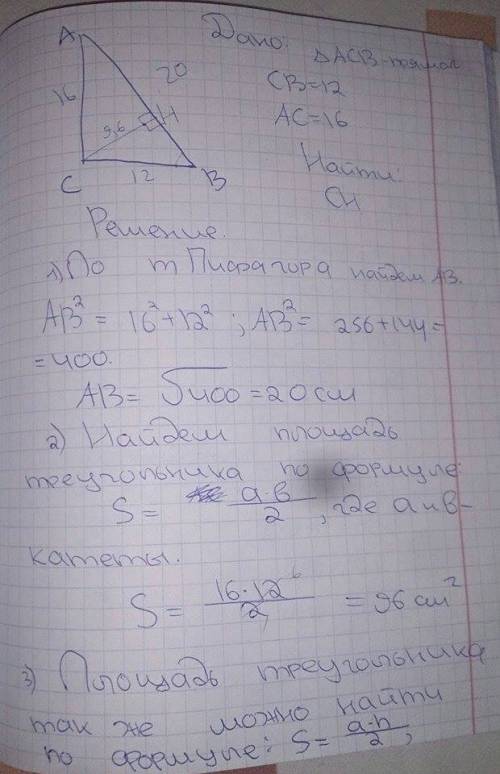 Дано:
A
ΔACB-прямог
20
CB=12
16
AC=16
H
9,6
Найти:
C
12
B
CH
Решение.
1) По т Пифагора найдем AB.
AB² = 16²+12² ; AB² = 256+144=
=400.
AB= √400 =20 см
2) Найдем площадь
треугольника по формуле:
S= a·в/2, где a и в-
катеты.
S= 16·12⁶/2 = 96 см²
3) Площадь треугольника
так же можно найти
по формуле: S= a·h/2;